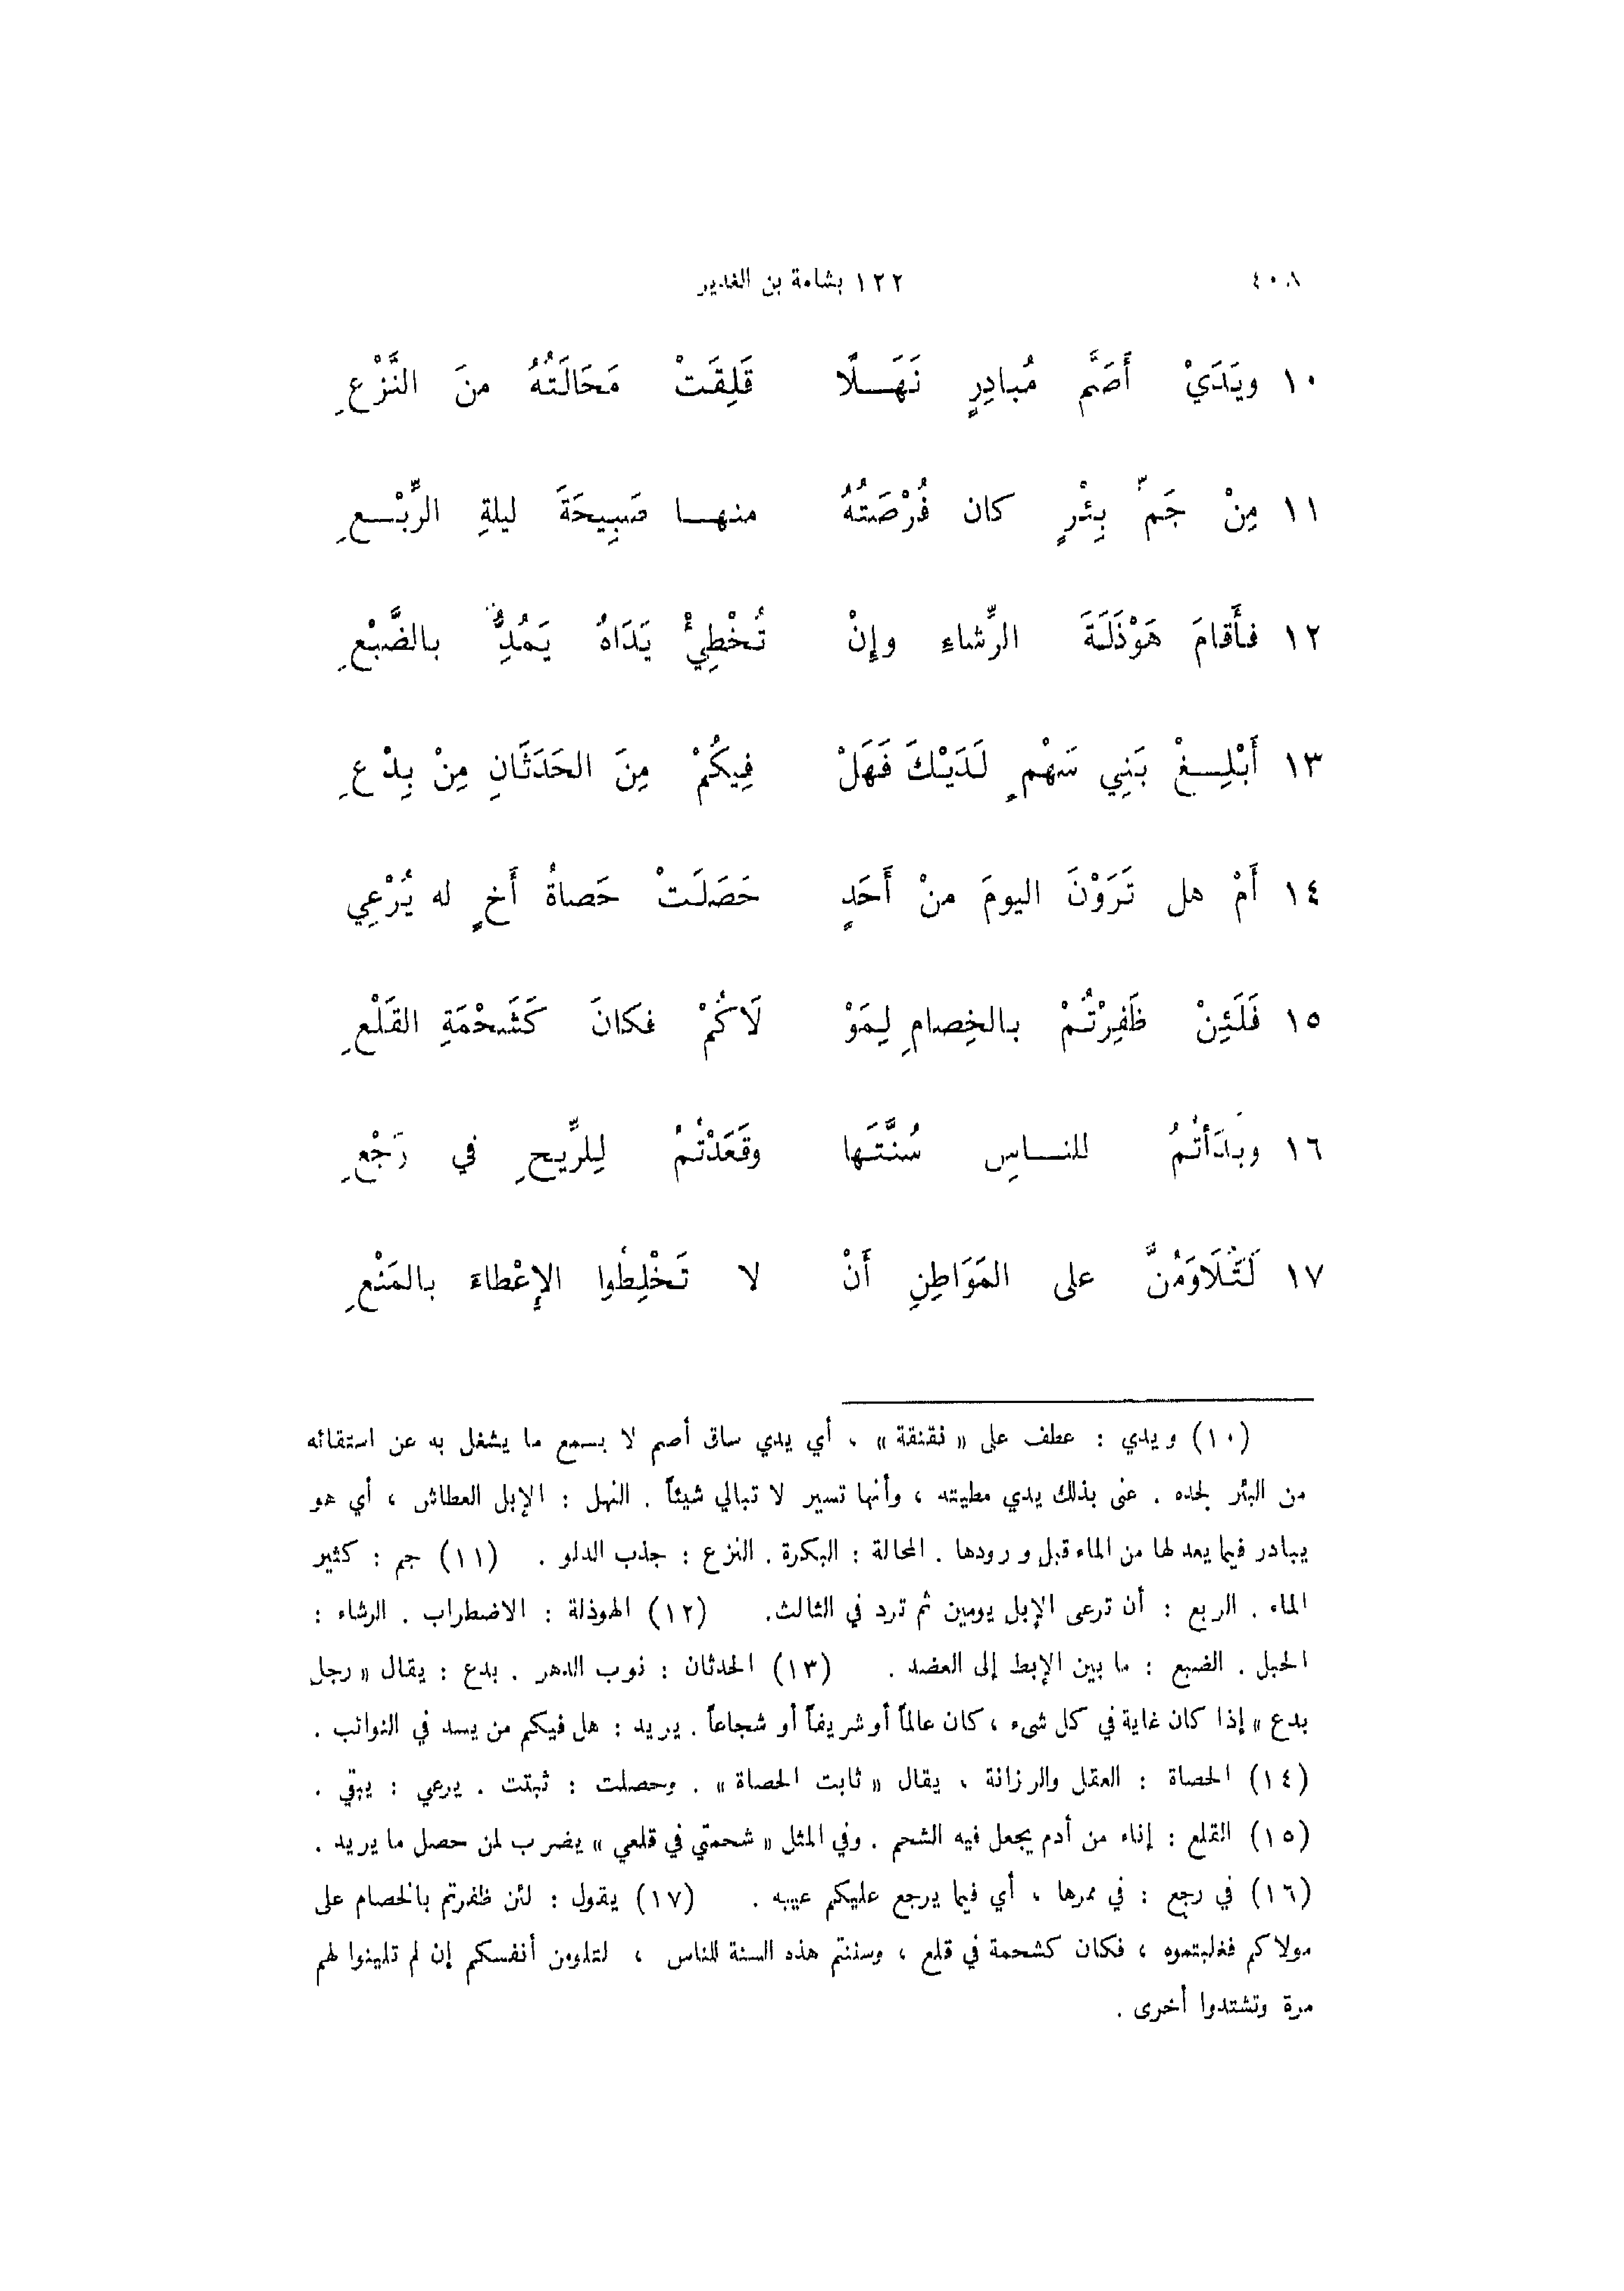 ٤٠٨ ١٢٢ بشامة بن الغدير
١٠ ويَدَيْ أَصَمَّ مُبادِرٍ نَهَـــلًا قَلِقَتْ مَحَالَتُهُ منَ النَّزْعِ
١١ مِنْ جَمِّ بِئْرٍ كان فُرْصَتُهُ منهـــا صَبِيحَةَ ليلةِ الرِّبْـــعِ
١٢ فأَقامَ هَوْذَلَةَ الرِّشاءِ وإِنْ تُخْطِيْ يَدَاهُ يَمُدُّ بالضَّبْعِ
١٣ أَبْلِـــغْ بَنِي سَهْمٍ لَدَيْكَ فَهَلْ فِيكُمْ مِنَ الحَدَثَانِ مِنْ بِدْعِ
١٤ أَمْ هل تَرَوْنَ اليومَ منْ أَحَدٍ حَصَلَتْ حَصاةُ أَخٍ له يُرْعِي
١٥ فَلَئِنْ ظَفِرْتُمْ بالخِصامِ لِمَوْ لَاكُمْ فكانَ كَشَحْمَةِ القَلْعِ
١٦ وبَدَأتُمُ للنـــاسِ سُنَّتَها وقَعَدْتُمُ لِلرِّيحِ في رَجْعِ
١٧ لَتَلَاوَمُنَّ على المَوَاطِنِ أَنْ لا تَخْلِطُوا الإِعْطاءَ بالمَنْعِ
(١٠) ويدي : عطف على « نقنقة » ، أي يدي ساق أصم لا يسمع ما يشغل به عن استقائه
من البئر لجده . عنى بذلك يدي مطيته ، وأنها تسير لا تبالي شيئاً . النهل : الإبل العطاش ، أي هو
يبادر فيما يعد لها من الماء قبل ورودها . المحالة : البكرة . النزع : جذب الدلو . (١١) جم : كثير
الماء . الربع : أن ترعى الإبل يومين ثم ترد في الثالث. (١٢) الهوذلة : الاضطراب . الرشاء :
الحبل . الضبع : ما بين الإبط إلى العضد . (١٣) الحدثان : نوب الدهر . بدع : يقال « رجل
بدع » إذا كان غاية في كل شيء ، كان عالماً أو شريفاً أو شجاعاً . يريد : هل فيكم من يسد في النوائب .
(١٤) الحصاة : العقل والرزانة ، يقال « ثابت الحصاة » . وحصلت : ثبتت . يرعي : يبقي .
(١٥) القلع : إناء من أدم يجعل فيه الشحم . وفي المثل « شحمتي في قلعي » يضرب لمن حصل ما يريد .
(١٦) في رجع : في ممرها ، أي فيما يرجع عليكم عيبه . (١٧) يقول : لئن ظفرتم بالخصام على
مولاكم فغلبتموه ، فكان كشحمة في قلع ، وسننتم هذه السنة للناس ، لتلومن أنفسكم إن لم تلينوا لهم
مرة وتشتدوا أخرى .